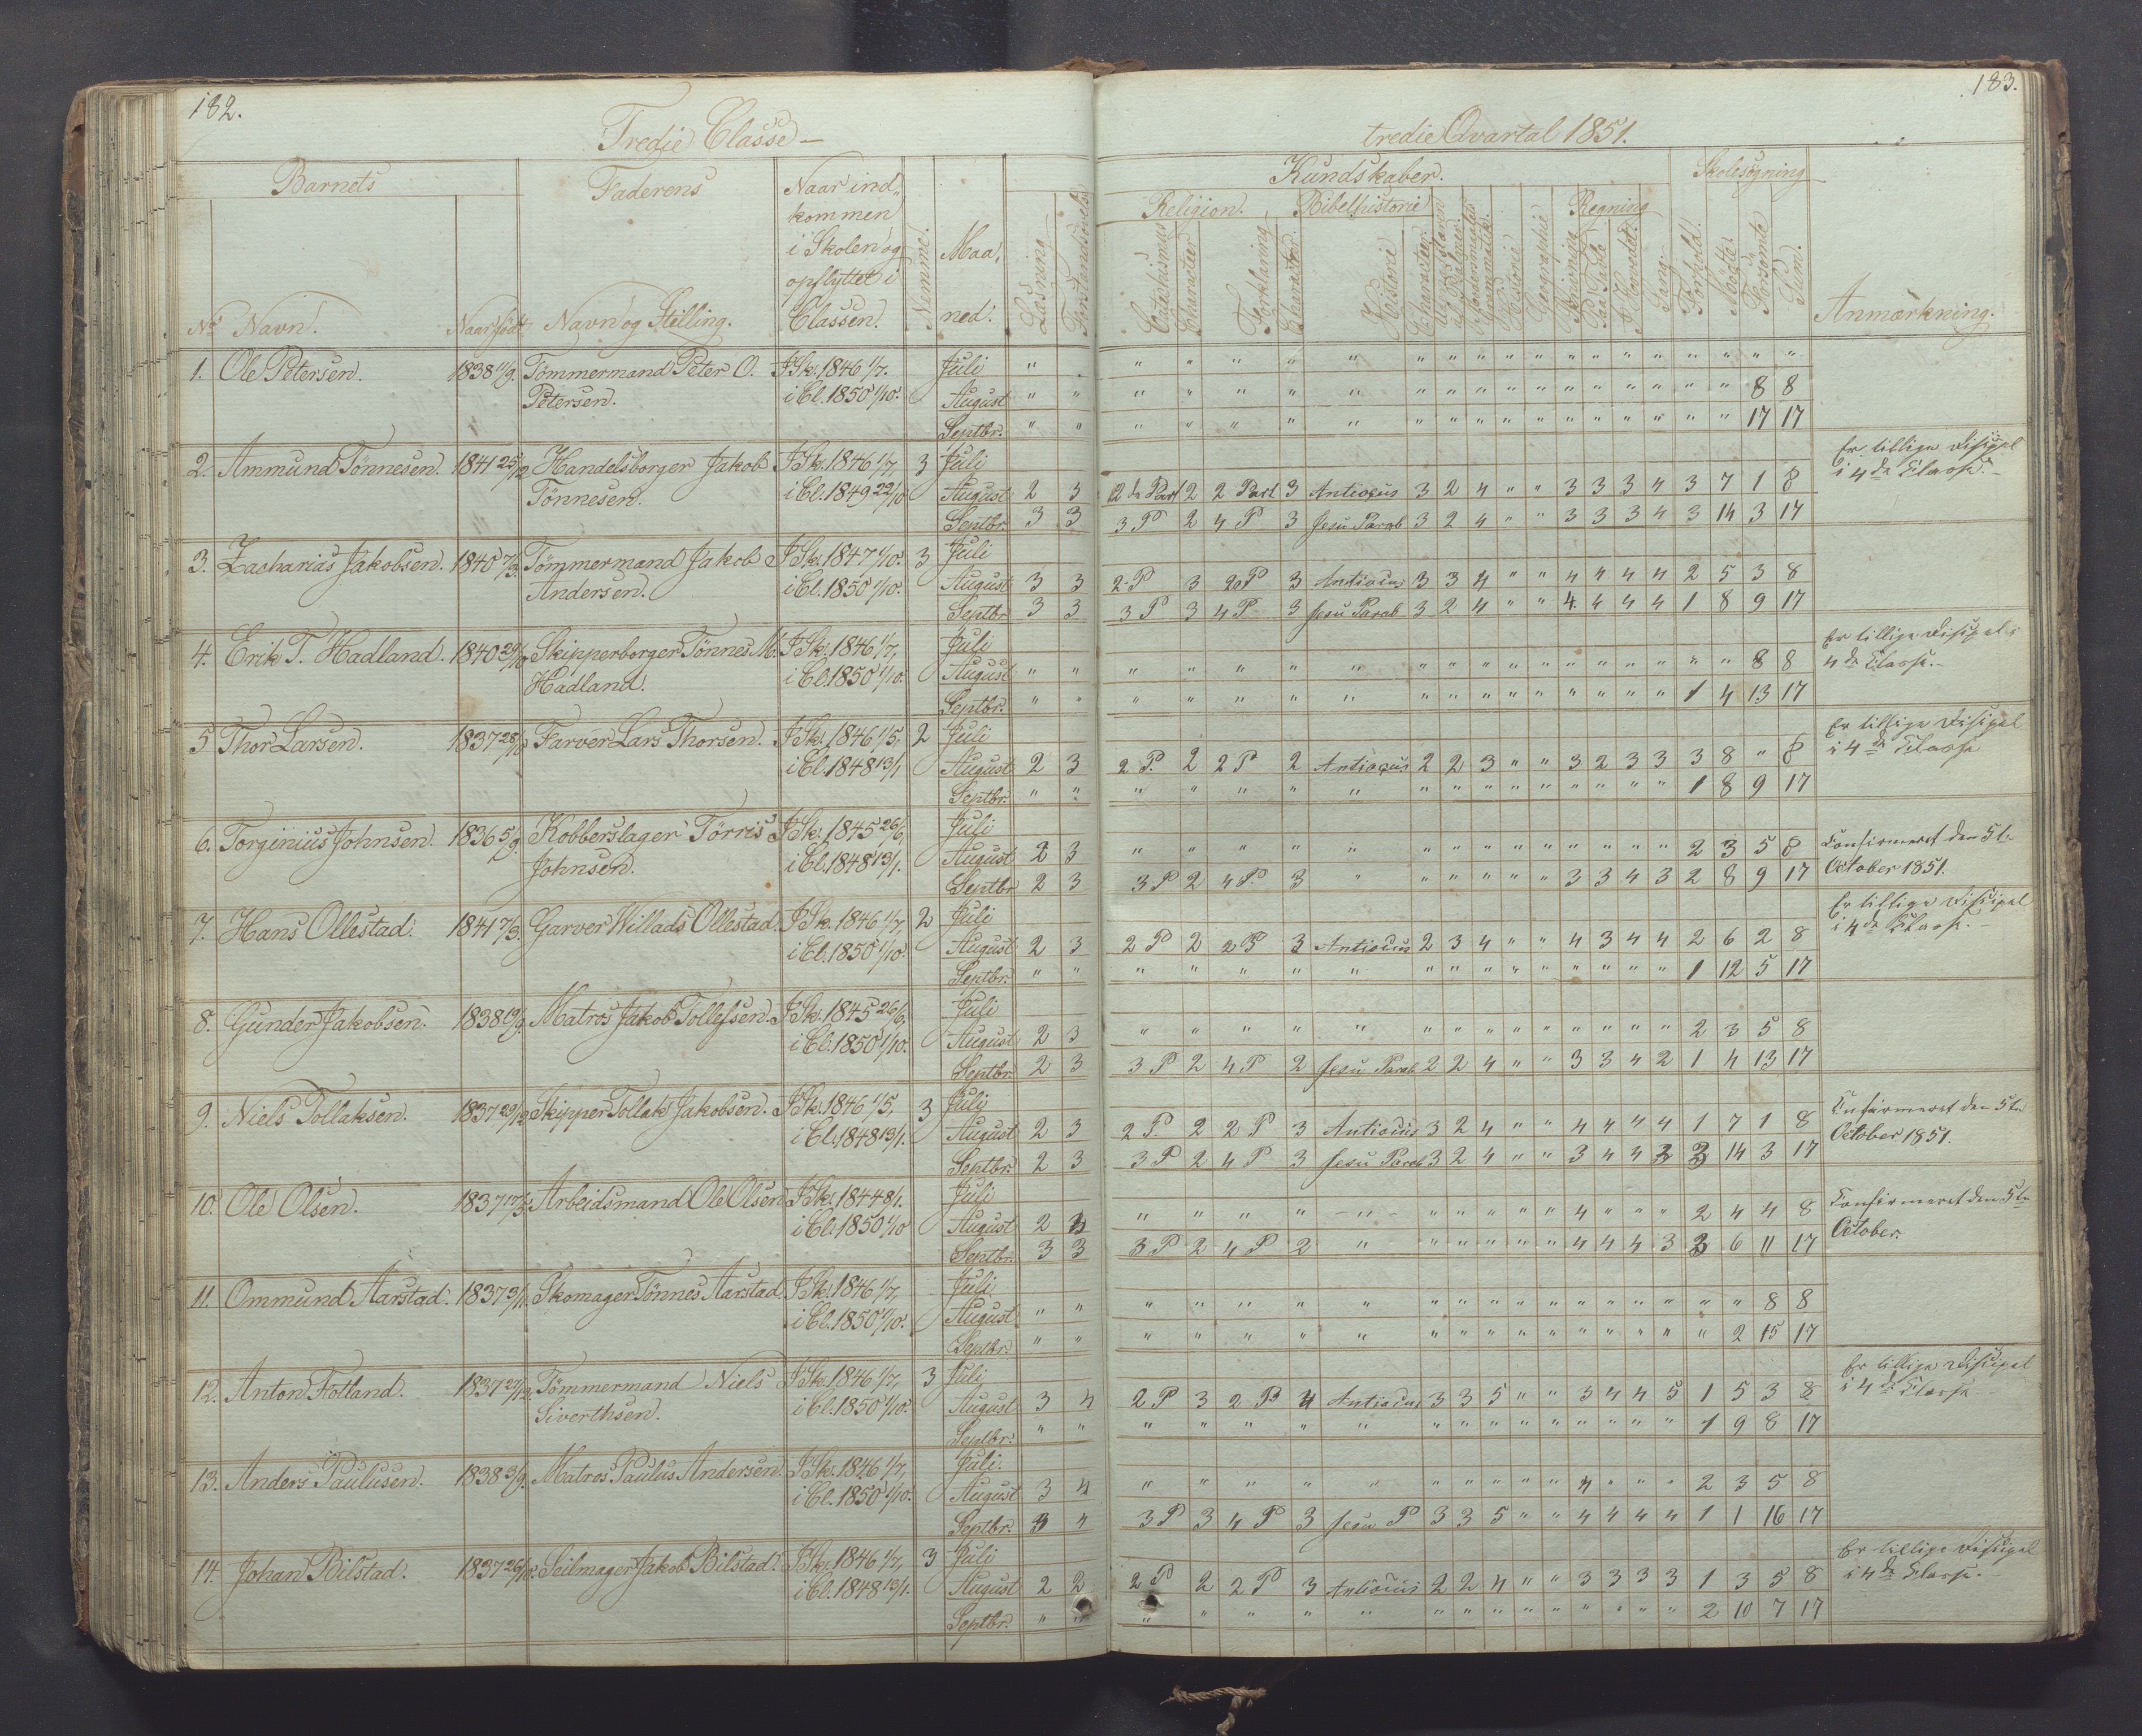 182.
183.
Tredje Classe —
tredie Qvartal 1851.
Barnets
Faderens
Naar ind-
kommen
i Skolen og
opflyttet i
Classen.
Nemme.
Maa-
ned.
Læsning
Kundskaber.
Skolesøgning
Religion.
Bibelhistorie
Regning
No Navn.
Naar født
Navn og Stilling.
Catechismus
Character
Forklaring
Character
Historie
Character
Grammatik
Historie
Geographie
Skrivning
Paa Tavle
i Hovedet
Sang.
Forhold.
Mødte
Forsømte
Sum.
Anmærkning.
1. Ole Petersen. 1838 11/9. Tømmermand Peter O. I Sk. 1846 1/7. Juli " " " " " " " " " " " " " " " " " "
Petersen. i Cl. 1850 1/10. August " " " " " " " " " " " " " " " " " " " 8 8
Septbr. " " " " " " " " " " " " " " " " " " " 17 17
2. Ammund Tønnesen. 1841 25/12 Handelsborger Jakob I Sk. 1846 1/7, 3 Juli Er tillige Discipel
Tønnesen. i Cl. 1849 22/10 August 2 3 2de Part 2 2 Part 3 Antiocus 3 2 4 " " 3 3 3 4 3 7 1 8 i 4de Classe. —
Septbr. 3 3 3 P 2 4 P 3 Jesu Parab 3 2 4 " " 3 3 3 4 3 14 3 17
3. Zacharias Jakobsen. 1840 7/3. Tømmermand Jakob I Sk. 1847 1/10. 3 Juli
Andersen. i Cl. 1850 1/10. August 3 3 2 P 3 2 P 3 Antiocus 3 3 4 " " 4 4 4 4 2 5 3 8
Septbr 3 3 3 P 3 4 P 3 Jesu Parab 3 2 4 " " 4 4 4 4 1 8 9 17
4. Erik T. Hadland. 1840 29/10 Skipperborger Tønnes M. I Sk. 1846 1/7, Juli Er tillige Discipel i
Hadland. i Cl. 1850 1/10. August " " " " " " " " " " " " " " " " " " " 8 8 4de Classe. —
Septbr. " " " " " " " " " " " " " " " " " 1 4 13 17
5 Thor Larsen. 1837 28/ Farver Lars Thorsen. I Sk. 1846 1/5, 2 Juli Er tillige Discipel
i Cl. 1848 13/1 August 2 3 2 P. 2 2 P 2 Antiocus 2 2 3 " " 3 2 3 3 3 8 " 8 i 4de Classe
Septbr. " " " " " " " " " " " " " " " " 1 8 9 17
6. Torginius Johnsen. 1836 5/9. Kobberslager Tørris I Sk. 1845 26/6, Juli
Johnsen. i Cl. 1848 13/1. August 2 3 " " " " " " " " " " " " " " 2 3 5 8 Confirmeret den 5te
Septbr 2 3 3 P 2 4 P. 3 " " " " " " 3 3 4 3 2 8 9 17 October 1851.
7. Hans Ollestad. 1841 7/3. Garver Willads Ollestad. I Sk. 1846 1/7, 2 Juli Er tillige Discipel
i Cl. 1850 1/10. August 2 3 2 P 2 2 P 3 Antiocus 2 3 4 " " 4 3 4 4 2 6 2 8 i 4de Classe. —
Septbr. " " " " " " " " " " " " " " " " 1 12 5 17
8. Gunder Jakobsen. 1838 19/9. Matros Jakob Tollefsen. I Sk. 1845 26/6, Juli
i Cl. 1850 1/10. August 2 3 " " " " " " " " " " " " " " 2 3 5 8
Septbr. 2 3 3 P 2 4 P 2 Jesu Parab 2 2 4 " " 3 3 4 2 1 4 13 17
9. Niels Tollaksen. 1837 29/12 Skipper Tollak Jakobsen. I Sk. 1846 1/5, 3 Juli Confirmeret den 5te
i Cl. 1848 13/1. August 2 3 2 P. 2 2 P 3 Antiocus 3 2 4 " " 4 4 4 4 1 7 1 8 October 1851.
Septbr. 2 3 3 P 2 4 P 3 Jesu Parab 3 2 4 " " 3 4 4 3 2 14 3 17
10. Ole Olsen. 1837 17/3. Arbeidsmand Ole Olsen I Sk. 1844 8/1. Juli Confirmeret den 5te
i Cl. 1850 1/10 August 2 " " " " " " " " " " 4 " " " 2 4 4 8 October.
Septbr. 3 3 3 P 2 4 P 2 " " " " " " 4 4 4 3 2 6 11 17
11. Ommund Aarstad. 1837 3/11. Skomager Tønnes Aarstad. I Sk. 1846 1/7, Juli
i Cl. 1850 1/10. August " " " " " " " " " " " " " " " " " " 8 8
Septbr. " " " " " " " " " " " " " " " " " 2 15 17
12. Anton Fotland. 1837 27/12 Tømmermand Niels I Sk. 1846 1/7, 3 Juli Er tillige Discipel
Siverthsen. i Cl. 1850 1/10. August 3 4 2 P 3 2 P 4 Antiocus 3 3 5 " " 3 4 4 5 1 5 3 8 i 4de Classe
Septbr. " " " " " " " " " " " " " " " " 1 9 8 17
13. Anders Paulusen. 1838 3/9. Matros Paulus Andersen. I Sk. 1846 1/7, Juli.
i Cl. 1850 1/10. August 3 4 " " " " " " " " " " 4 " " " 2 3 5 8
Septbr. 3 4 3 P 3 4 P 3 Jesu P 3 3 5 " " 4 4 4 4 1 1 16 17
14. Johan Bilstad. 1837 26/12. Seilmager Jakob Bilstad. I Sk. 1846 1/7, 3 Juli Er tillige Discipel
i Cl. 1848 13/1. August 2 2 2 P 2 2 P 3 Antiocus 2 2 4 " " 3 3 3 3 1 3 5 8 i 4de Classe. —
Septbr. " " " " " " " " " " " " " " " " 2 10 7 17